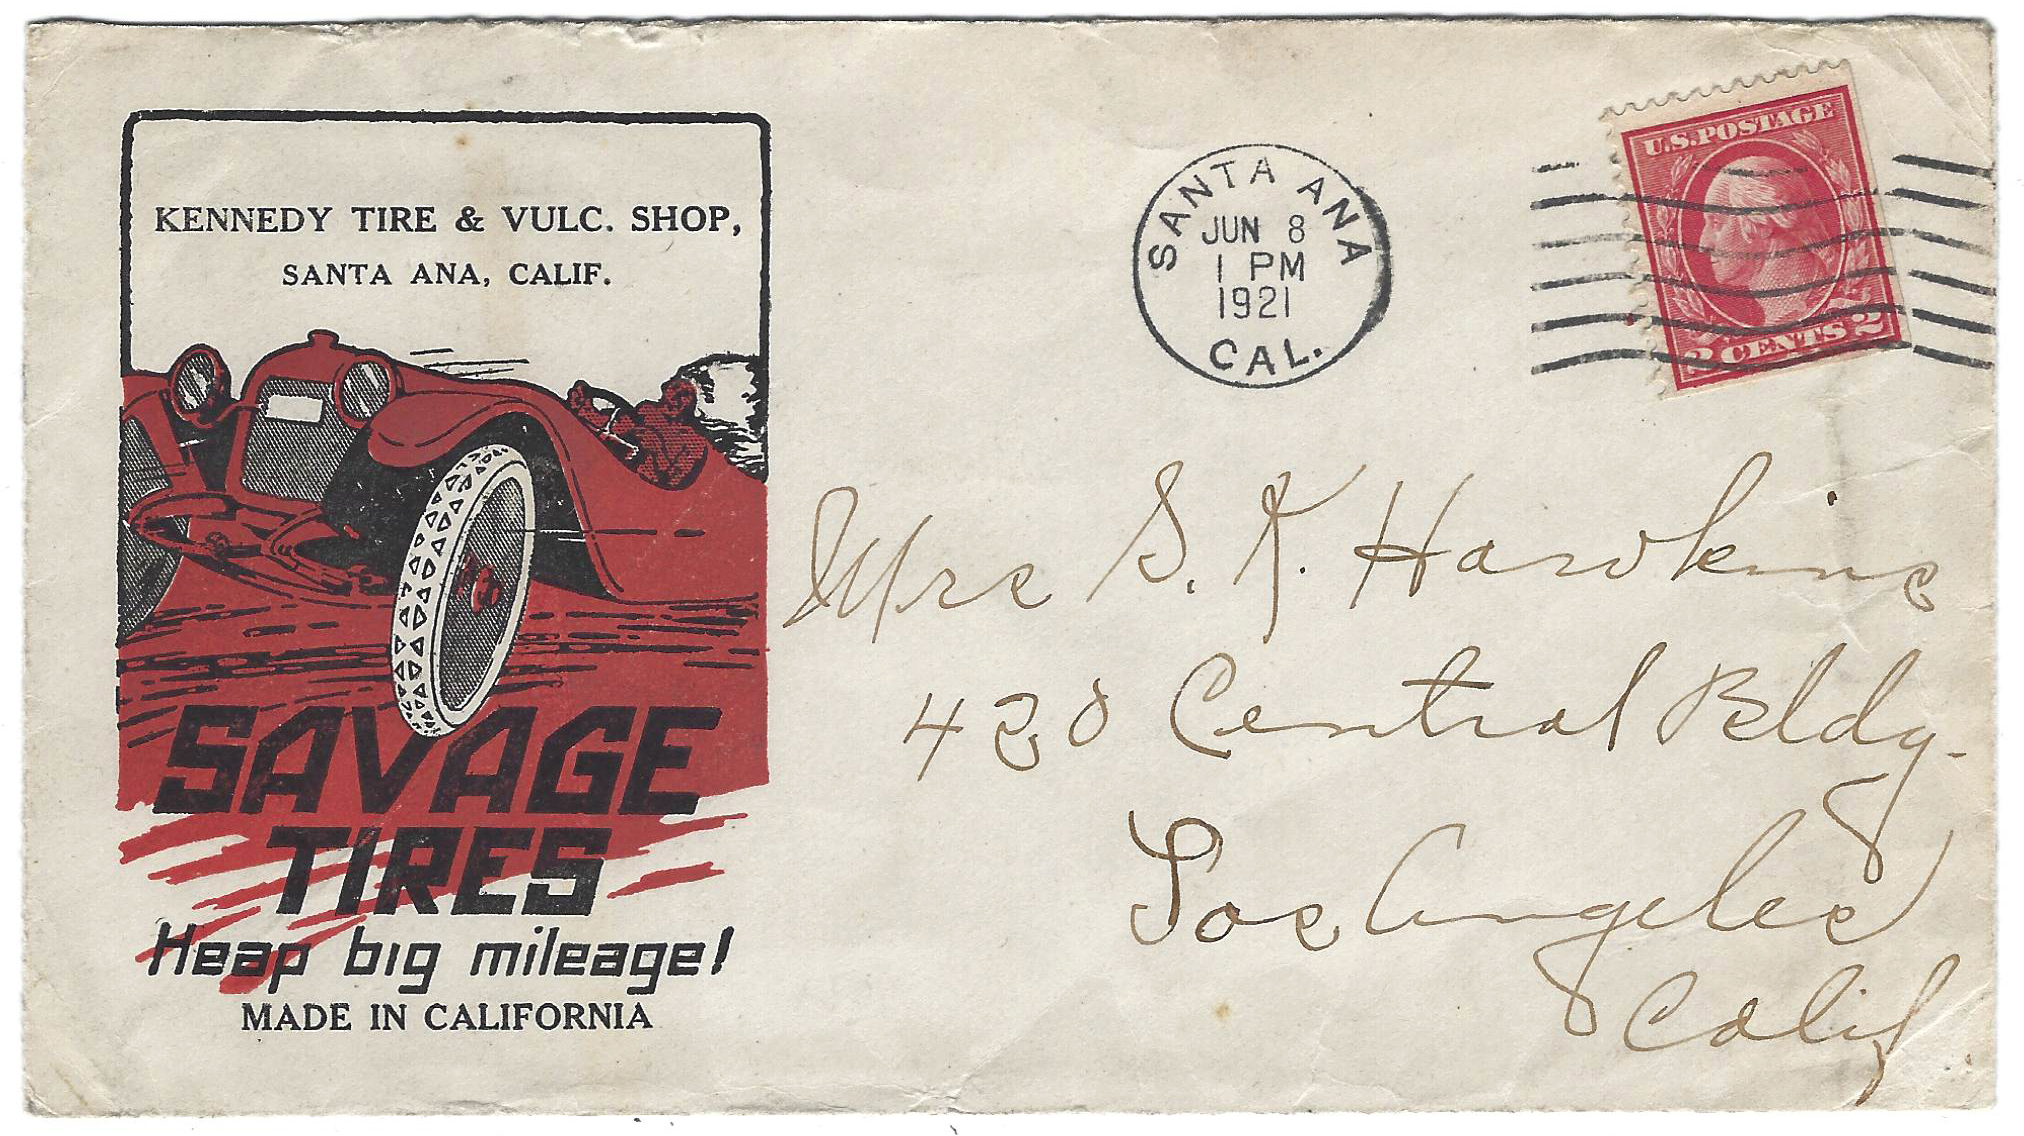 KENNEDY TIRE & VULC. SHOP,
SANTA ANA, CALIF.
SAVAGE
TIRES
Heap big mileage!
MADE IN CALIFORNIA
SANTA ANA
JUN 8
1 PM
1921
CAL.
U.S. POSTAGE
2 CENTS 2
Mrs S. K. Hawkins
420 Central Bldg.
Los Angeles
Calif